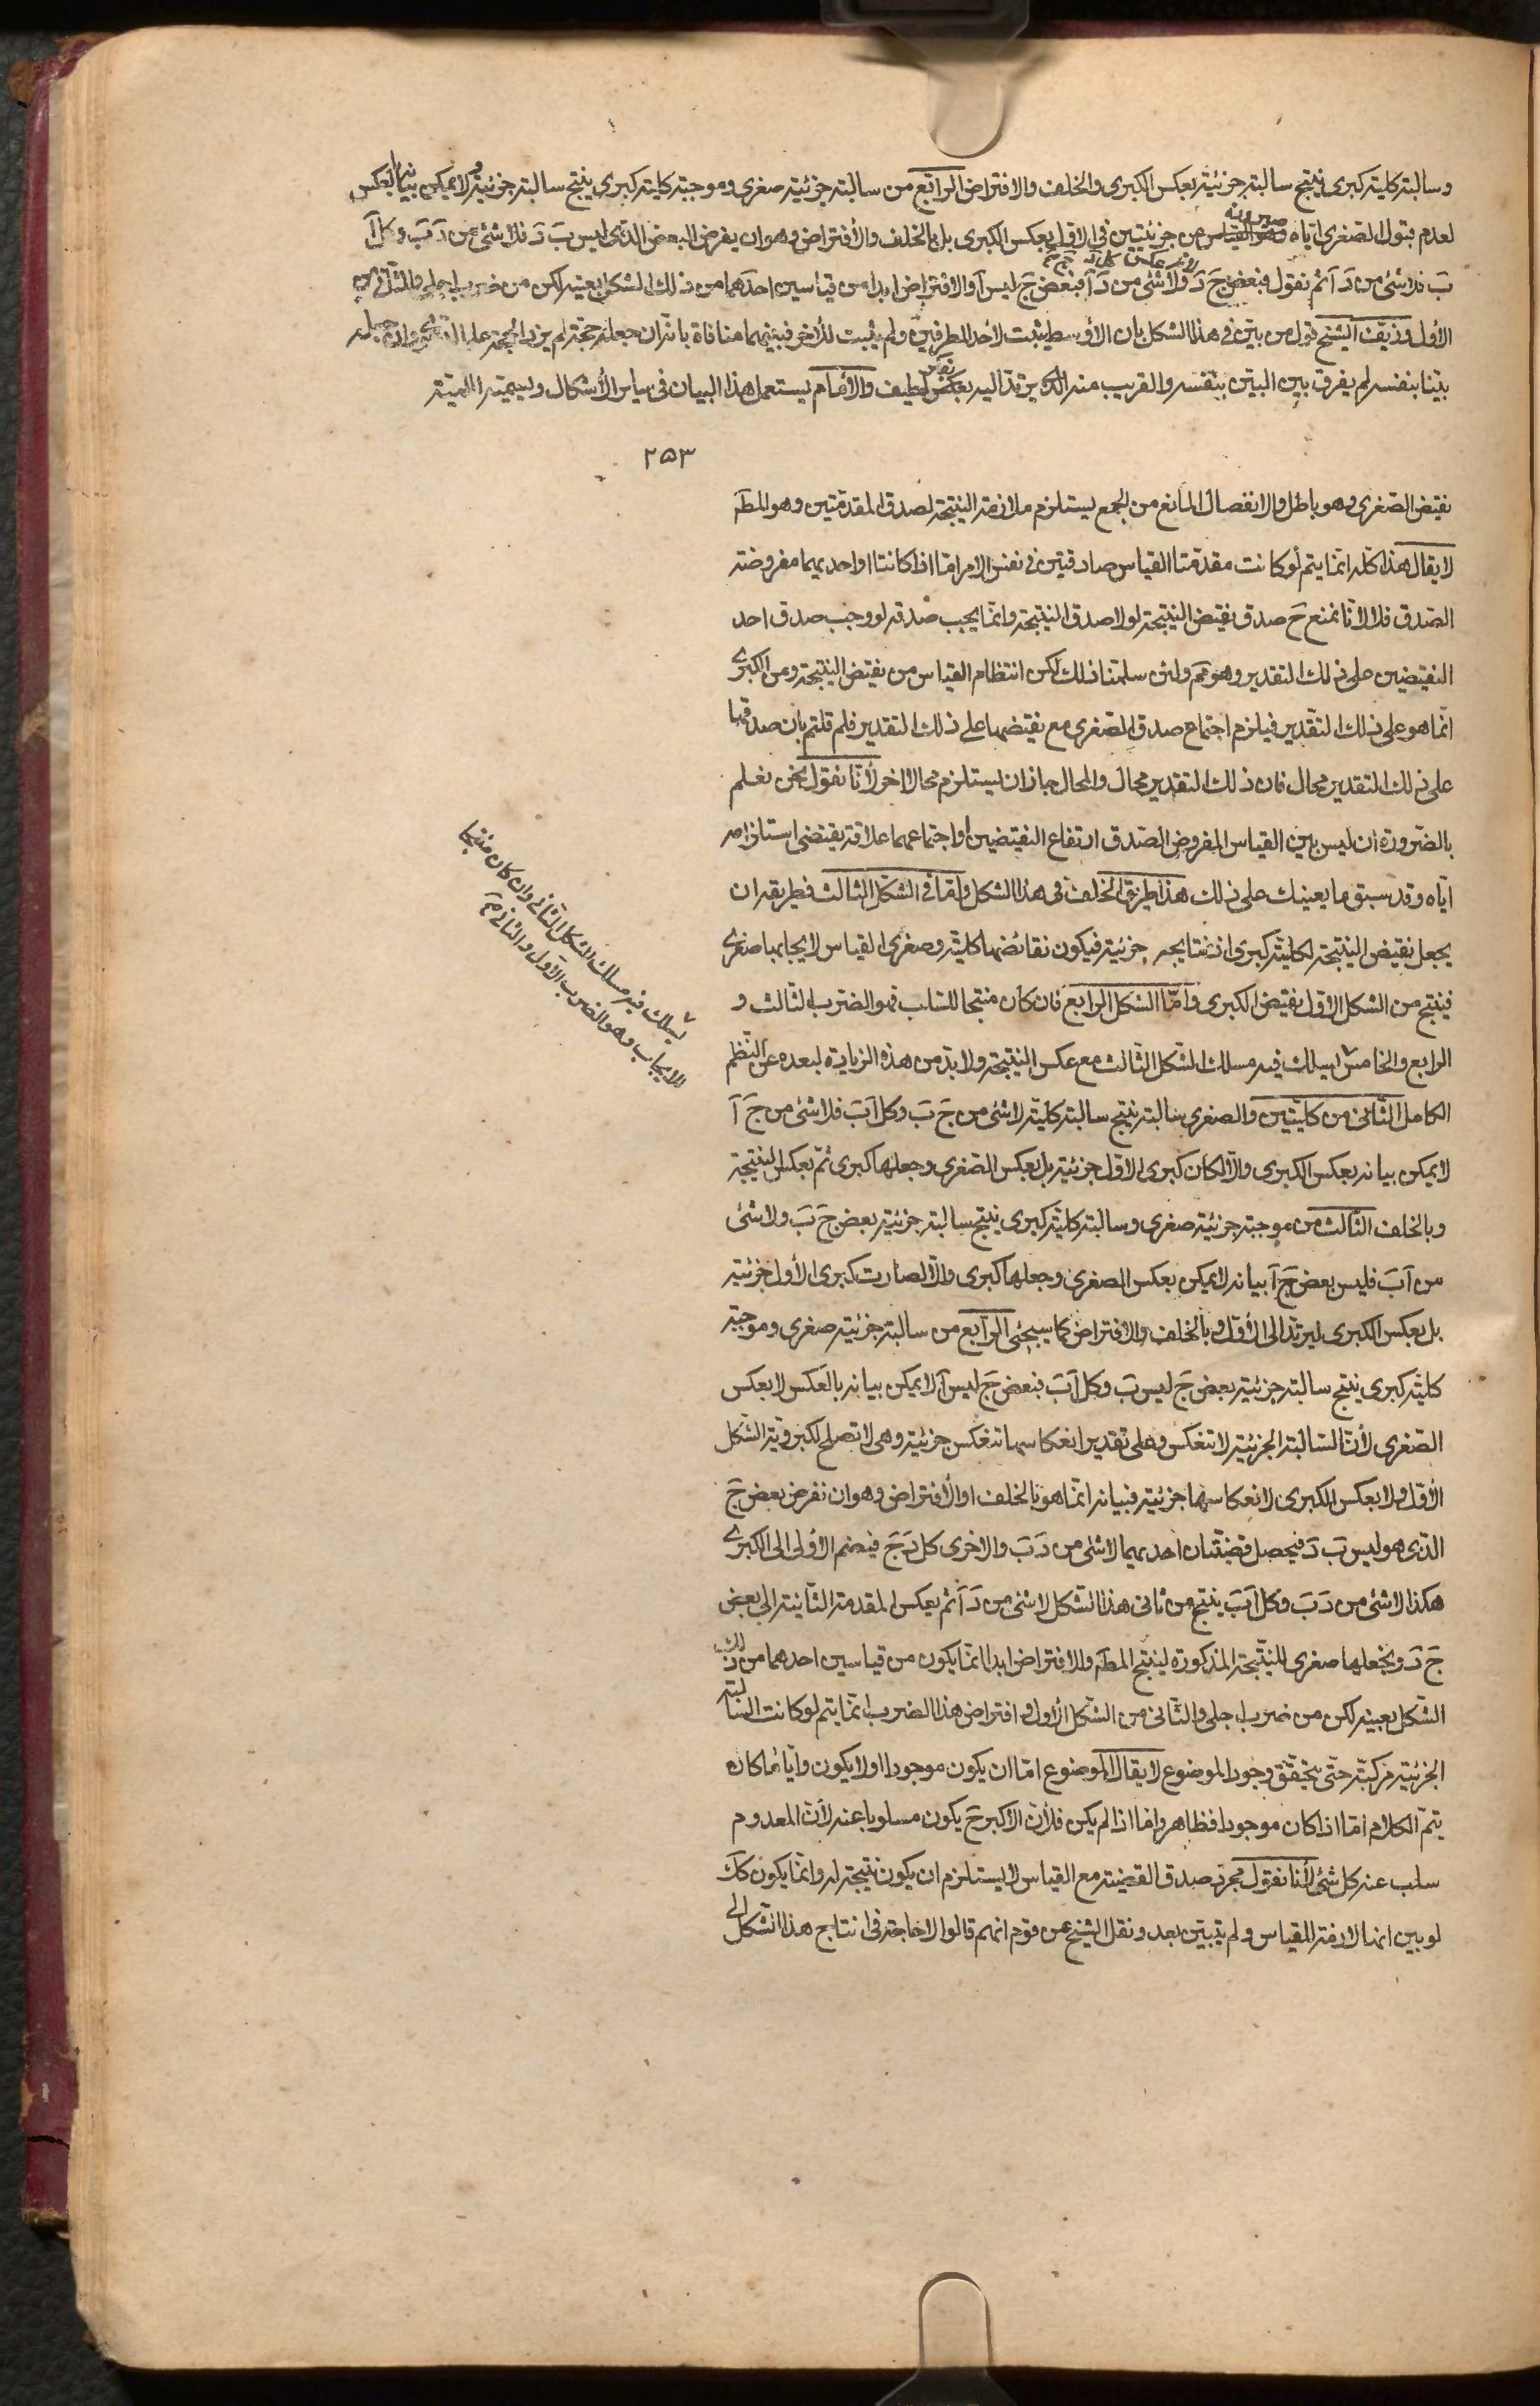 وسالبة كلية كبرى فينتج سالبة جزئية بعكس الكبرى والخلف والافتراض الرابع من سالبة جزئية صغرى وموجبة كلية كبرى ينتج سالبة جزئية ولا يمكن بيانها بالعكس
لعدم قبول الصغرى اياه من جزئيتين في الاول بعكس الكبرى بل بالخلف والأفتراض وهو ان يفرض البعض الذى ليس بَ دَ فلا شئ من دَ بَ وكل آ
بَ فلا شئ من دَ آ ثم نقول فبعض جَ دَ ولا شئ من دَ آ فبعض جَ ليس آ والافتراض ابدا من قياسين احدهما من ذلك الشكل بعينه لكن من ضرب اجلى والثانى من
الأول وزيف الشيخ قول من بين في هذا الشكل بان الأوسط يثبت لأحد الطرفين ولم يثبت للأخر فبينهما منافاة بانه ان جعله حجة لم يزد الحجة على الدعوى وان جعله
بينا بنفسه لم يفرق بين البين بنفسه والقريب منه الذى يرتد اليه بفكر لطيف والأمام يستعمل هذا البيان في ساير الأشكال ويسميته اللمية
٢٥٣
نقيض الصغرى وهو باطل والانفصال المانع من الجمع يستلزم ملازمة النتيجة لصدق المقدمتين وهو المط
لا يقال هذا كله انما يتم لو كانت مقدمتا القياس صادقتين في نفس الامر اما اذا كانتا او احديهما مفروضة
الصدق فلا لانا نمنع حَ صدق نقيض النتيجة لولا صدق النتيجة وانما يجب صدقه لو وجب صدق احد
النقيضين على ذلك التقدير وهو مم ولئن سلمنا ذلك لكن انتظام القياس من نقيض النتيجة ومن الكبرى
انما هو على ذلك التقدير فيلزم اجتماع صدق الصغرى مع نقيضها على ذلك التقدير فلم قلتم بان صدقها
على ذلك التقدير محال فان ذلك التقدير محال والمحال جاز ان يستلزم محالا اخر لأنا نقول نحن نعلم
بالضرورة ان ليس بين القياس المفروض الصدق ارتفاع النقيضين او اجتماعهما علاقة يقتضى استلزامه
اياه وقد سبق ما يعينك على ذلك هذا طريق الخلف في هذا الشكل واما في الشكل الثالث فطريقه ان
يجعل نقيض النتيجة لكليته كبرى اذ نتايجه جزئية فيكون نقائضها كلية وصغرى القياس لايجابها صغرى
فينتج من الشكل الأول نقيض الكبرى واما الشكل الرابع فان كان منتجا للسلب فهو الضرب الثالث و
الرابع والخامس يسلك فيه مسلك الشكل الثالث مع عكس النتيجة ولابد من هذه الزيادة لبعده عن النظم
يسلك فيه مسلك الشكل الثانى وان كان منتجا
للايجاب وهو الضرب الاول والثانى مَ
الكامل الثانى من كليتين والصغرى سالبة ينتج سالبة كلية لا شئ من جَ بَ وكل آ بَ فلا شئ من جَ آ
لا يمكن بيانه بعكس الكبرى والا لكان كبرى الاول جزئية بل بعكس الصغرى وجعلها كبرى ثم بعكس النتيجة
وبالخلف الثالث من موجبة جزئية صغرى وسالبة كلية كبرى ينتج سالبة جزئية بعض جَ بَ ولا شئ
من آ بَ فليس بعض جَ آ بيانه لا يمكن بعكس الصغرى وجعلها كبرى والا لصارت كبرى الأول جزئية
بل بعكس الكبرى ليرتد الى الأول وبالخلف والأفتراض كما سيجئ الرابع من سالبة جزئية صغرى وموجبة
كلية كبرى ينتج سالبة جزئية بعض جَ ليس بَ وكل آ بَ فبعض جَ ليس آ لا يمكن بيانه بالعكس لا بعكس
الصغرى لأن السالبة الجزئية لا تنعكس وعلى تقدير انعكاسها تنعكس جزئية وهى لا تصلح لكبروية الشكل
الأول ولا بعكس الكبرى لانعكاسها جزئية فبيانه انما هو بالخلف او الأفتراض وهو ان نفرض بعض جَ
الذى هو ليس بَ دَ فيحصل قضيتان احديهما لا شئ من دَ بَ والاخرى كل دَ جَ فيضم الأولى الى الكبرى
هكذا لا شئ من دَ بَ وكل آ بَ ينتج من ثانى هذا الشكل لا شئ من دَ آ ثم يعكس المقدمة الثانية الى بعض
جَ دَ ونجعلها صغرى للنتيجة المذكورة لينتج المط والافتراض ابدا انما يكون من قياسين احدهما من ذلك
الشكل بعينه لكن من ضرب اجلى والثانى من الشكل الأول وافتراض هذا الضرب انما يتم لو كانت السالبة
الجزئية مركبة حتى يتحقق وجود الموضوع لا يقال الموضوع اما ان يكون موجودا او لا يكون وايا ما كان
يتم الكلام اما اذا كان موجودا فظاهر واما اذا لم يكن فلأن الأكبر حَ يكون مسلوبا عنه لأن المعدوم
سلب عنه كل شئ لأنا نقول مجرد صدق القضية مع القياس لا يستلزم ان يكون نتيجة له وانما يكون كك
لو بين انها لازمة للقياس ولم يتبين بعد ونقل الشيخ عن قوم انهم قالوا لا حاجة في انتاج هذا الشكل الى